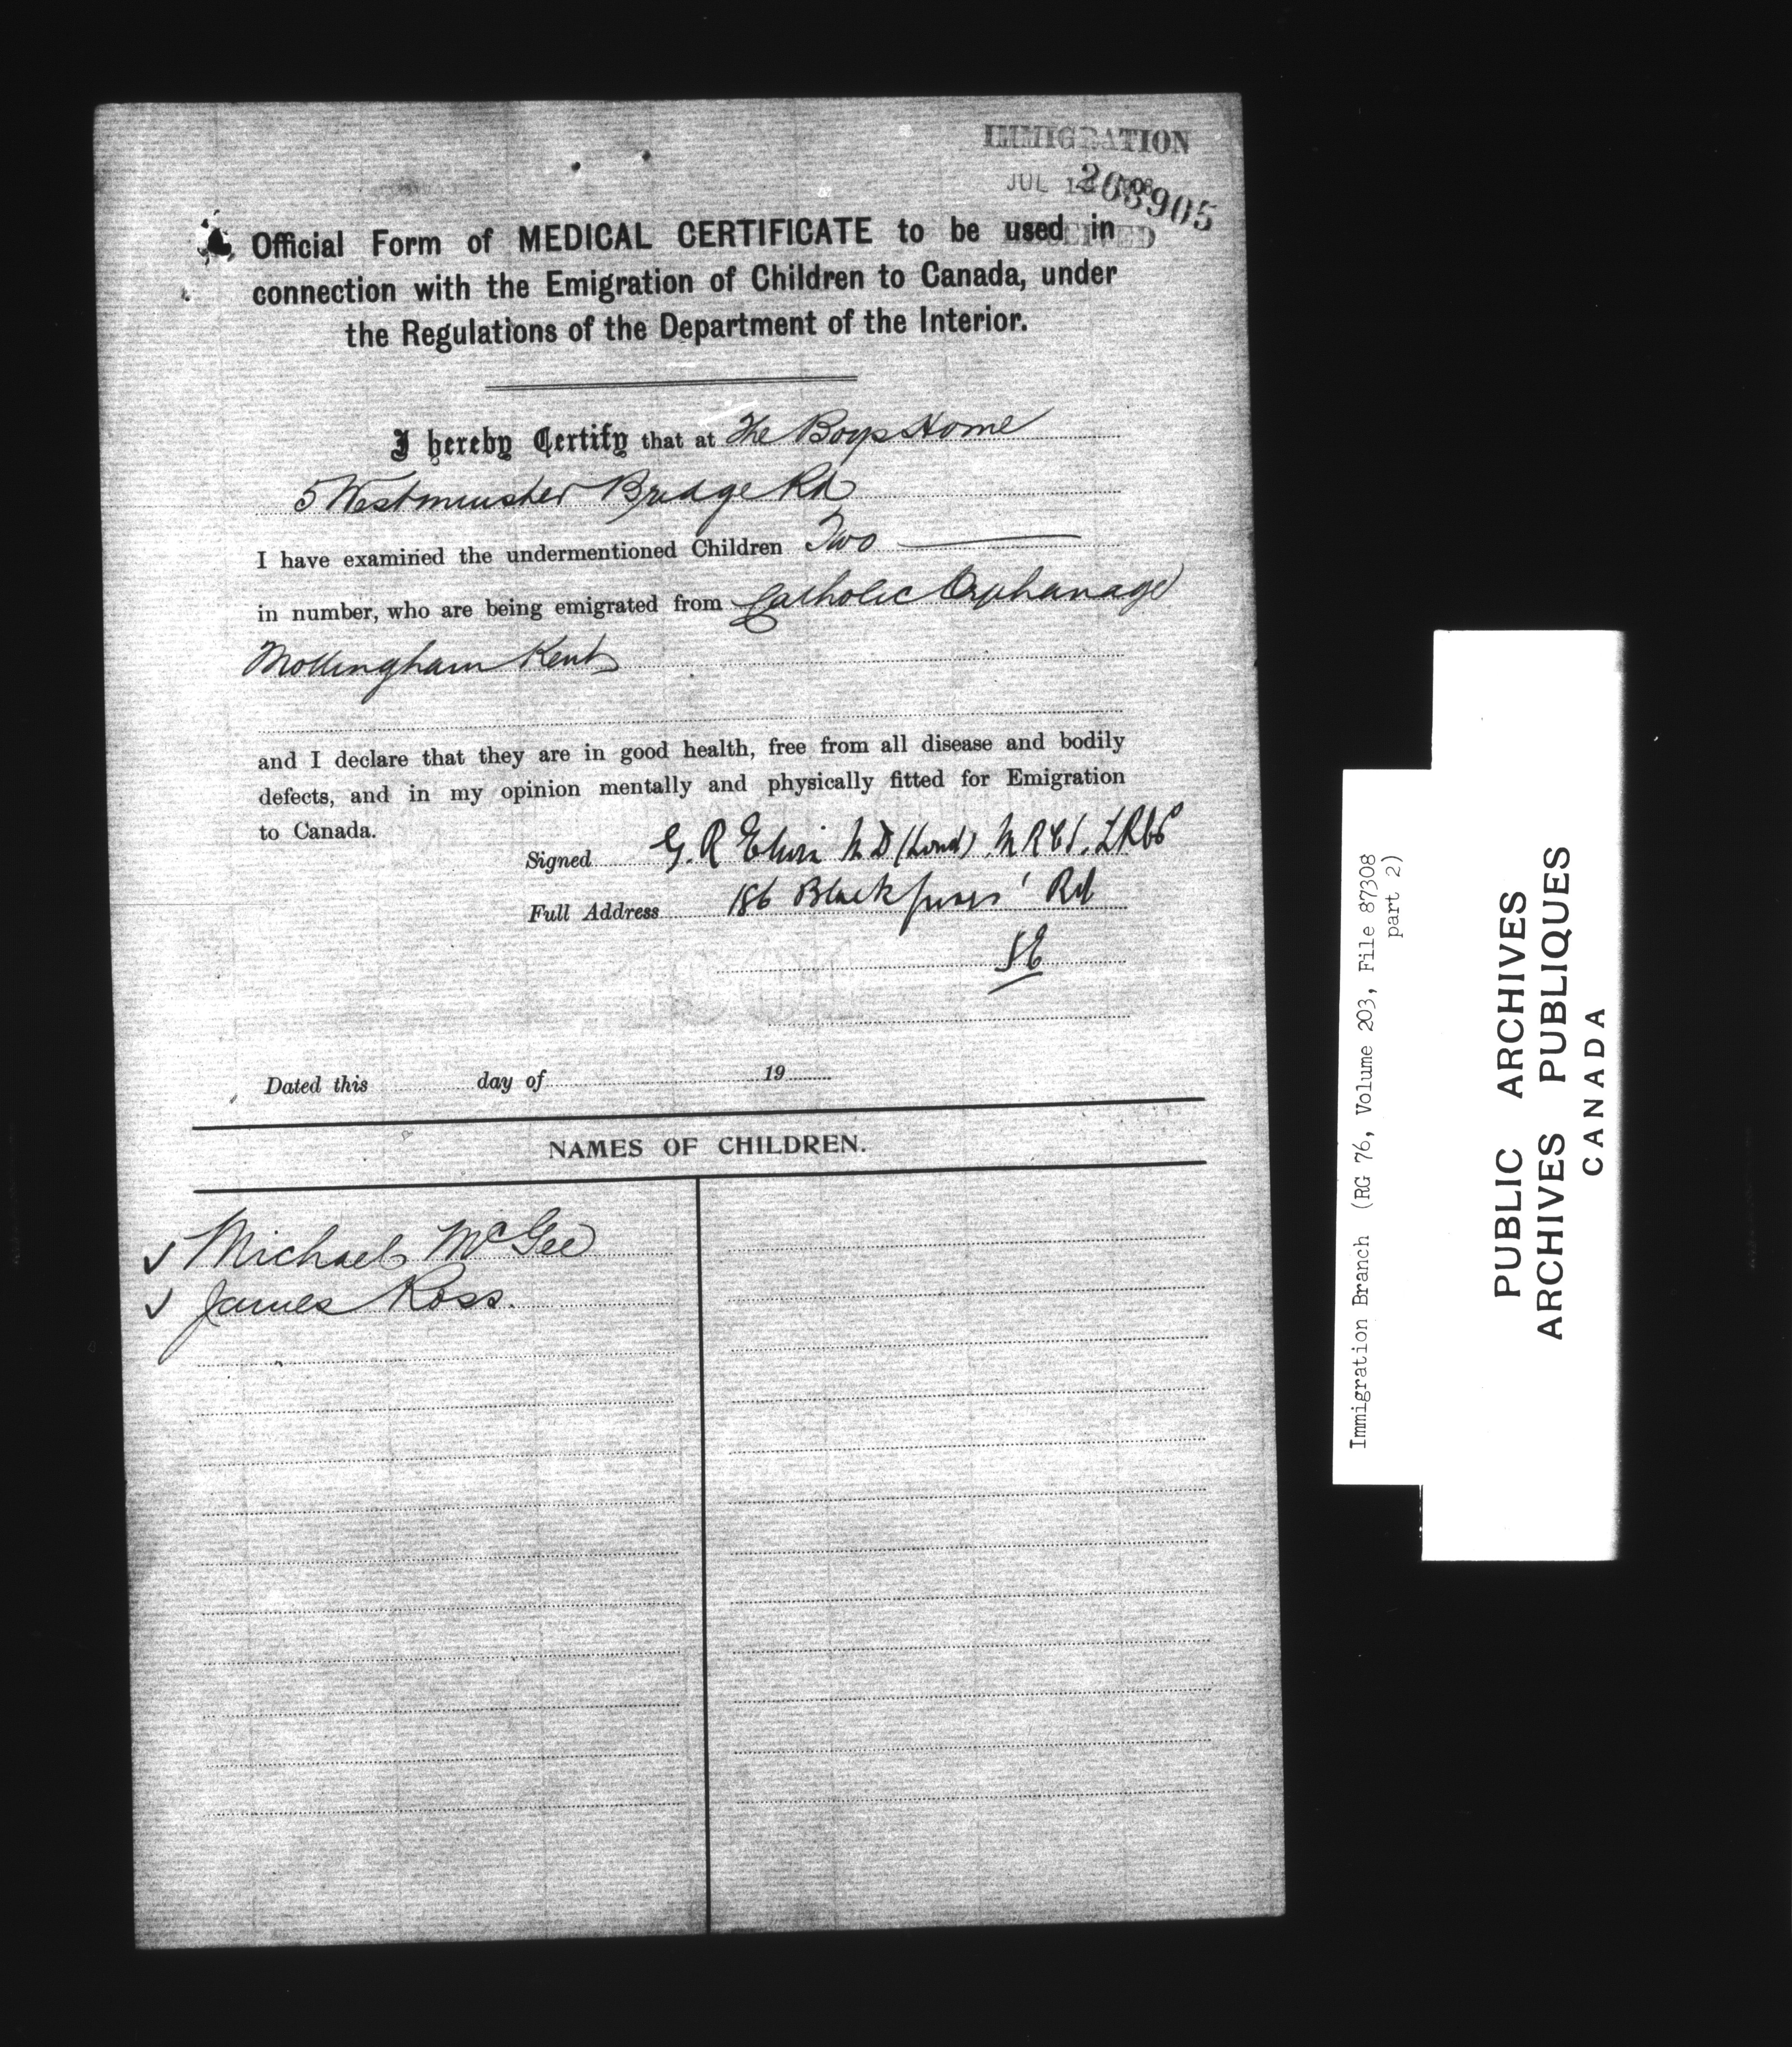 IMMIGRATION
JUL
208905
Official Form of MEDICAL CERTIFICATE to be used in
connection with the Emigration of Children to Canada, under
the Regulations of the Department of the Interior.
I hereby Certify that at The Boys Home
5 Westminster Bridge Rd
I have examined the undermentioned Children Two
in number, who are being emigrated from Catholic Orphanage
Mottingham Kent
and I declare that they are in good health, free from all disease and bodily
defects, and in my opinion mentally and physically fitted for Emigration
to Canada.
Signed G. R. M D (Lond) M R C S. L R C P
Full Address 186 Blackfriars' Rd
S E
Dated this day of 19
NAMES OF CHILDREN.
✓ Michael McGee
✓ James Ross.
Immigration Branch (RG 76, Volume 203, File 87308
part 2)
PUBLIC ARCHIVES
ARCHIVES PUBLIQUES
CANADA